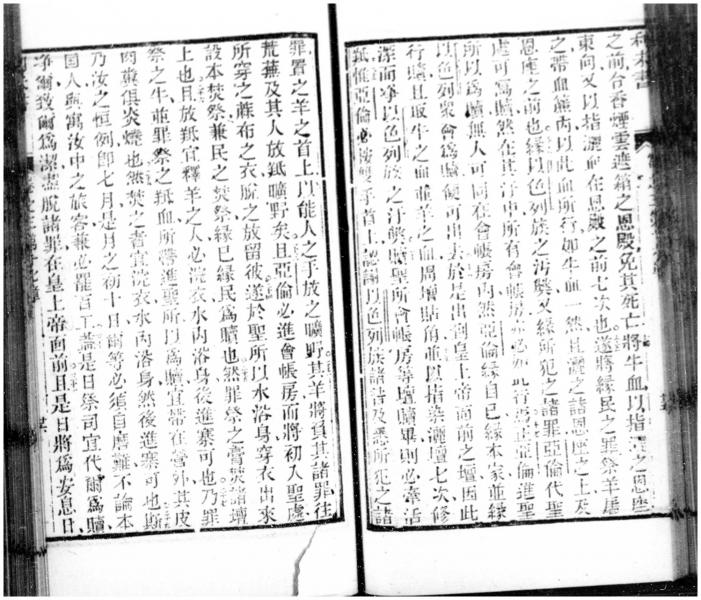 利未書
之前台香煙雲遮箱之恩殿免其死亡將牛血以指洒之恩座
東向又以指洒血在恩殿之前七次也遂將緣民之罪祭羊屠
之帶血簾內以此血所行如牛血一然且洒之諸恩座之上及
恩座之前也緣以色列族之污獎又緣所犯之諸罪亞倫代聖
處可為贖然在其汙中所有會帳房亦必如此行為正亞倫進聖
所以為贖無人可同在會帳房內然亞倫緣自己緣本家並緣
以色列眾會為贖便可出去於是出到皇上帝面前之壇因此
行贖且取牛之血並羊之血周壇貼角並以指染洒壇七次修
潔而寧以色列族之汙獎贖聖所會帳房等壇贖畢則必牽活
羝惟亞倫必按雙手首上認謝以色列族諸告及悉所犯之諸
罪置之羊之首上以能人之手放之曠野其羊將負其諸罪往
荒蕪及其人放羝曠野矣且亞倫必進會帳房而將初入聖處
所穿之蔴布之衣脫之放留彼遂於聖所以水浴身穿衣出來
設本焚祭兼民之焚祭緣已緣民為贖也然罪祭之膏焚諸壇
上也且放羝官釋羊之人必浣衣水內浴身後進寨可也乃罪
祭之牛並罪祭之羝血所攜進聖所以為贖宜帶在營外其皮
肉糞俱炎燬也然焚之者宜浣衣水內浴身然後進寨可也斯
乃汝之恒例即七月是月之初十日爾等必須自磨難不論本
國人與寓汝中之旅客兼必罷百工蓋是日祭司宜代爾為贖
淨爾致爾為潔盡脫諸罪在皇上帝面前且是日將為安息日